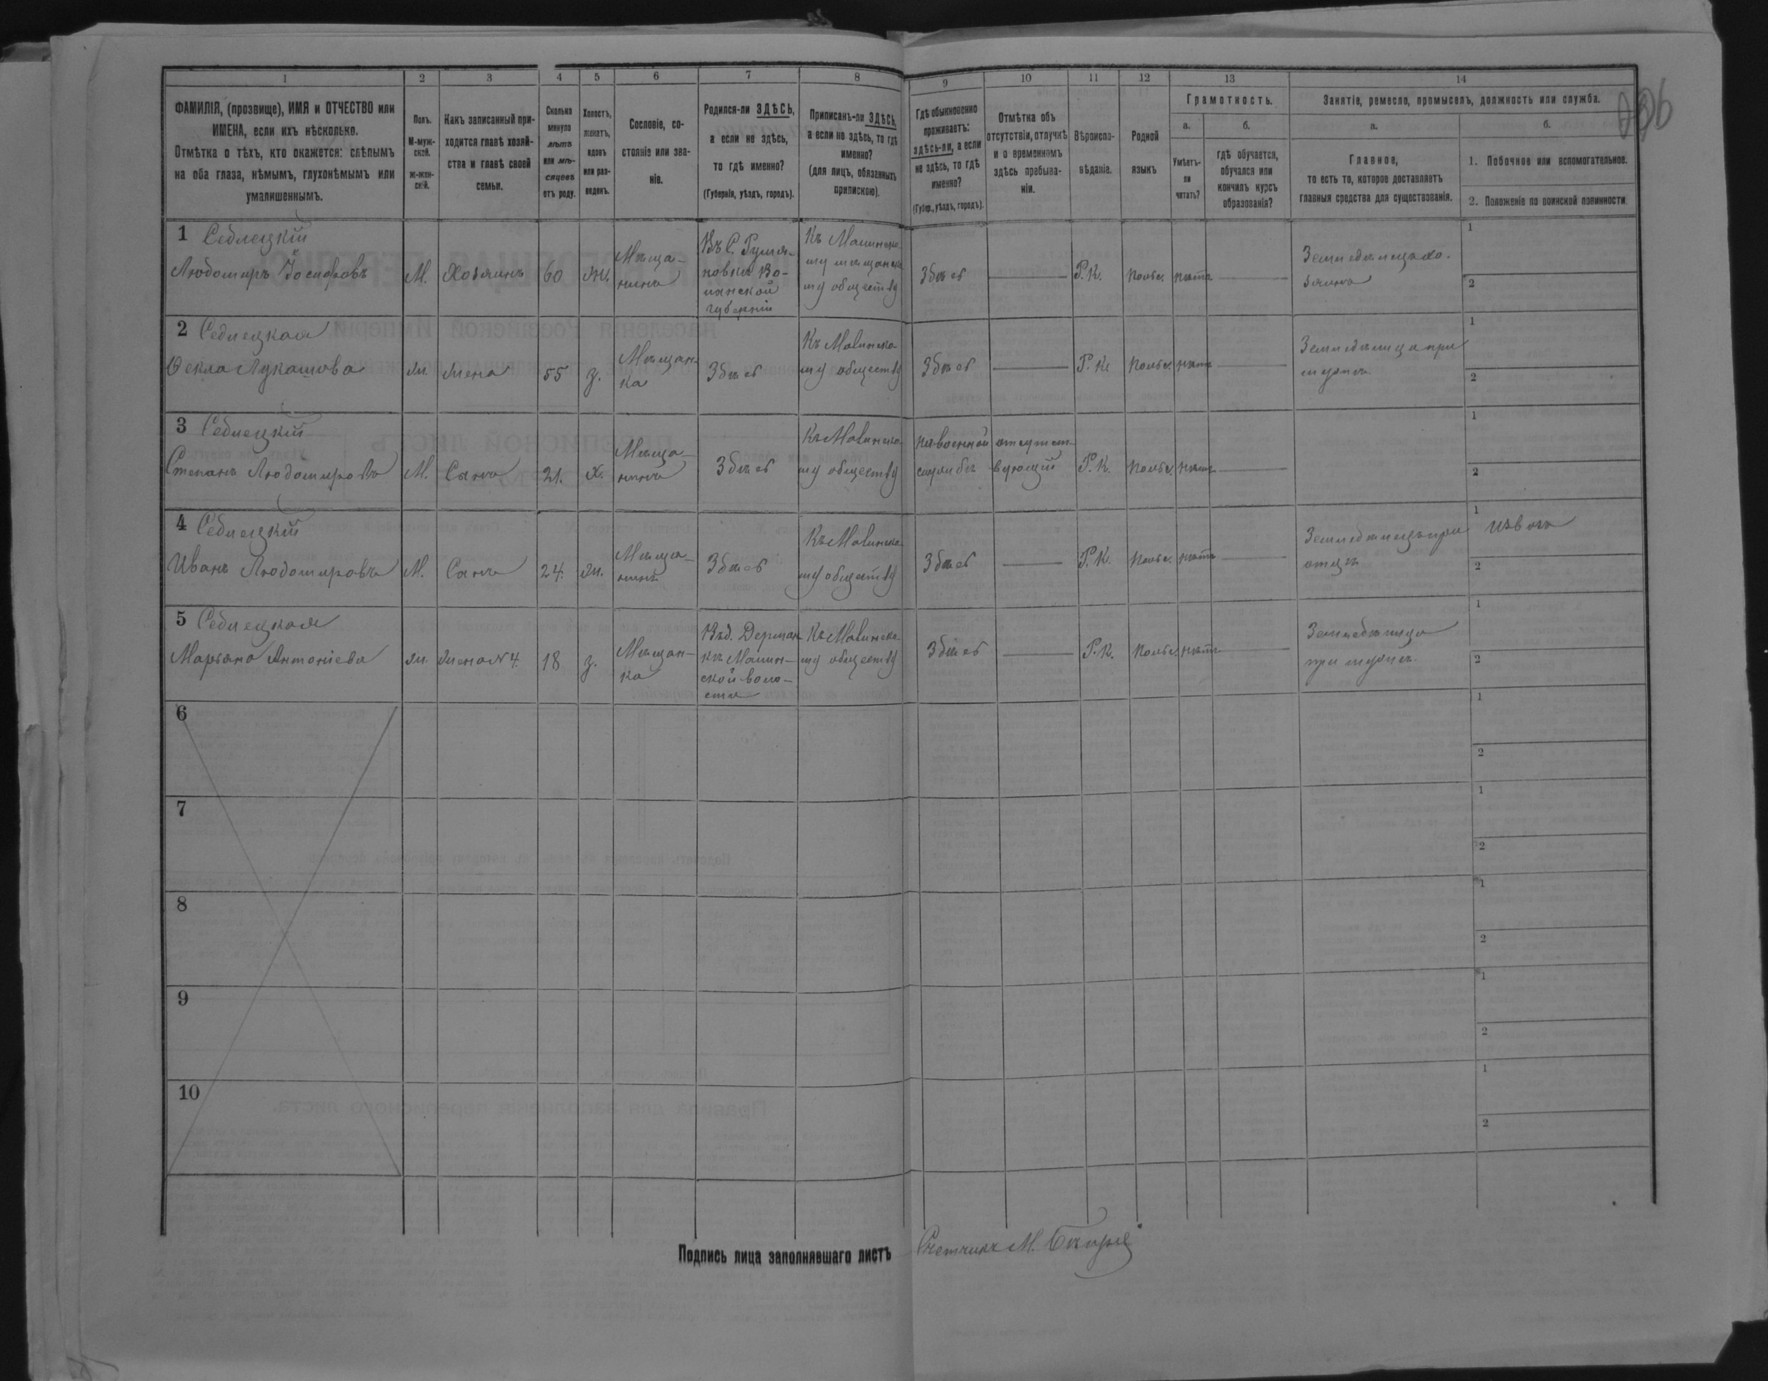 1 2 3 4 5 6 7 8 9 10 11 12 13 14
ФАМИЛІЯ, (прозвище), ИМЯ и ОТЧЕСТВО или ИМЕНА, если ихъ нѣсколько.
Отмѣтка о тѣхъ, кто окажется: слѣпымъ на оба глаза, нѣмымъ, глухонѣмымъ или умалишеннымъ.
Полъ.
М-мужской.
ж-женскій.
Какъ записанный приходится главѣ хозяйства и главѣ своей семьи.
Сколько минуло лѣтъ или мѣсяцевъ отъ роду.
Холостъ, женатъ, вдовъ или разведенъ.
Сословіе, состояніе или званіе.
Родился-ли ЗДѢСЬ, а если не здѣсь, то гдѣ именно?
(Губернія, уѣздъ, городъ).
Приписанъ-ли ЗДѢСЬ, а если не здѣсь, то гдѣ именно?
(для лицъ, обязанныхъ припискою).
Гдѣ обыкновенно проживаетъ: здѣсь-ли, а если не здѣсь, то гдѣ именно?
(Губер., уѣздъ, городъ).
Отмѣтка объ отсутствіи, отлучкѣ и о временномъ здѣсь пребываніи.
Вѣроисповѣданіе.
Родной языкъ
Грамотность.
а.
Умѣетъ-ли читать?
б.
гдѣ обучается, обучался или кончилъ курсъ образованія?
Занятіе, ремесло, промыселъ, должность или служба.
а.
Главное,
то есть то, которое доставляетъ главныя средства для существованія.
б.
1. Побочное или вспомогательное.
2. Положеніе по воинской повинности
1 Седлецкій
Людомиръ Іосифовъ
М.
Хозяинъ
60
Жи.
Мѣща-
нинъ
Въ С.
губерніи
Къ Малинско-
му мѣщанско
му обществу
Здѣсь
Р. К.
Польс.
нѣтъ
Земледѣлецъ хо-
зяинъ
1
2
2 Седлецкая
Ѳекла Лукашова
жи.
жена
55
з.
Мѣщан-
ка
Здѣсь
Къ Малинско-
му обществу
Здѣсь
Р. К.
Польс.
нѣтъ
Земледѣлица при
мужѣ
1
2
3 Седлецкій
Степанъ Людомировъ
М.
Сынъ
21.
х.
Мѣща-
нинъ
Здѣсь
Къ Малинско-
му обществу
На военной
службѣ
отсутст-
вующій
Р. К.
Польс.
нѣтъ
1
2
4 Седлецкій
Иванъ Людомировъ
М.
Сынъ
24.
жи.
Мѣща-
нинъ
Здѣсь
Къ Малинско-
му обществу
Здѣсь
Р. К.
Польс.
нѣтъ
Земледѣлецъ при
отцѣ
1
2
5 Седлецкая
Марьяна Антоніева
жи.
жена N 4
18
з.
Мѣщан-
ка
Въ д. Дерман
къ Малин-
ской воло-
сти
Къ Малинско-
му обществу
Здѣсь
Р. К.
Польс.
нѣтъ
Земледѣлица
при мужѣ
1
2
6
1
2
7
1
2
8
1
2
9
1
2
10
1
2
Подпись лица заполнявшаго листъ
Счетчикъ М.